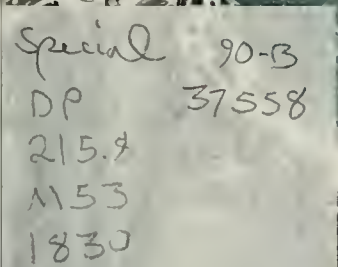 Special 90-B
DP 37558
215.9
M53
1830